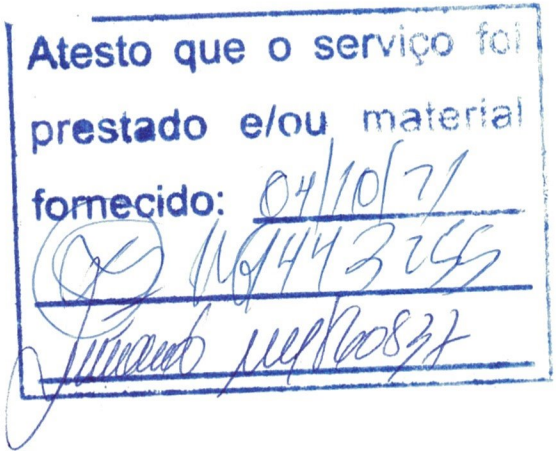 Atesto que o serviço foi
prestado e/ou material
fornecido: 04/10/21
1443255